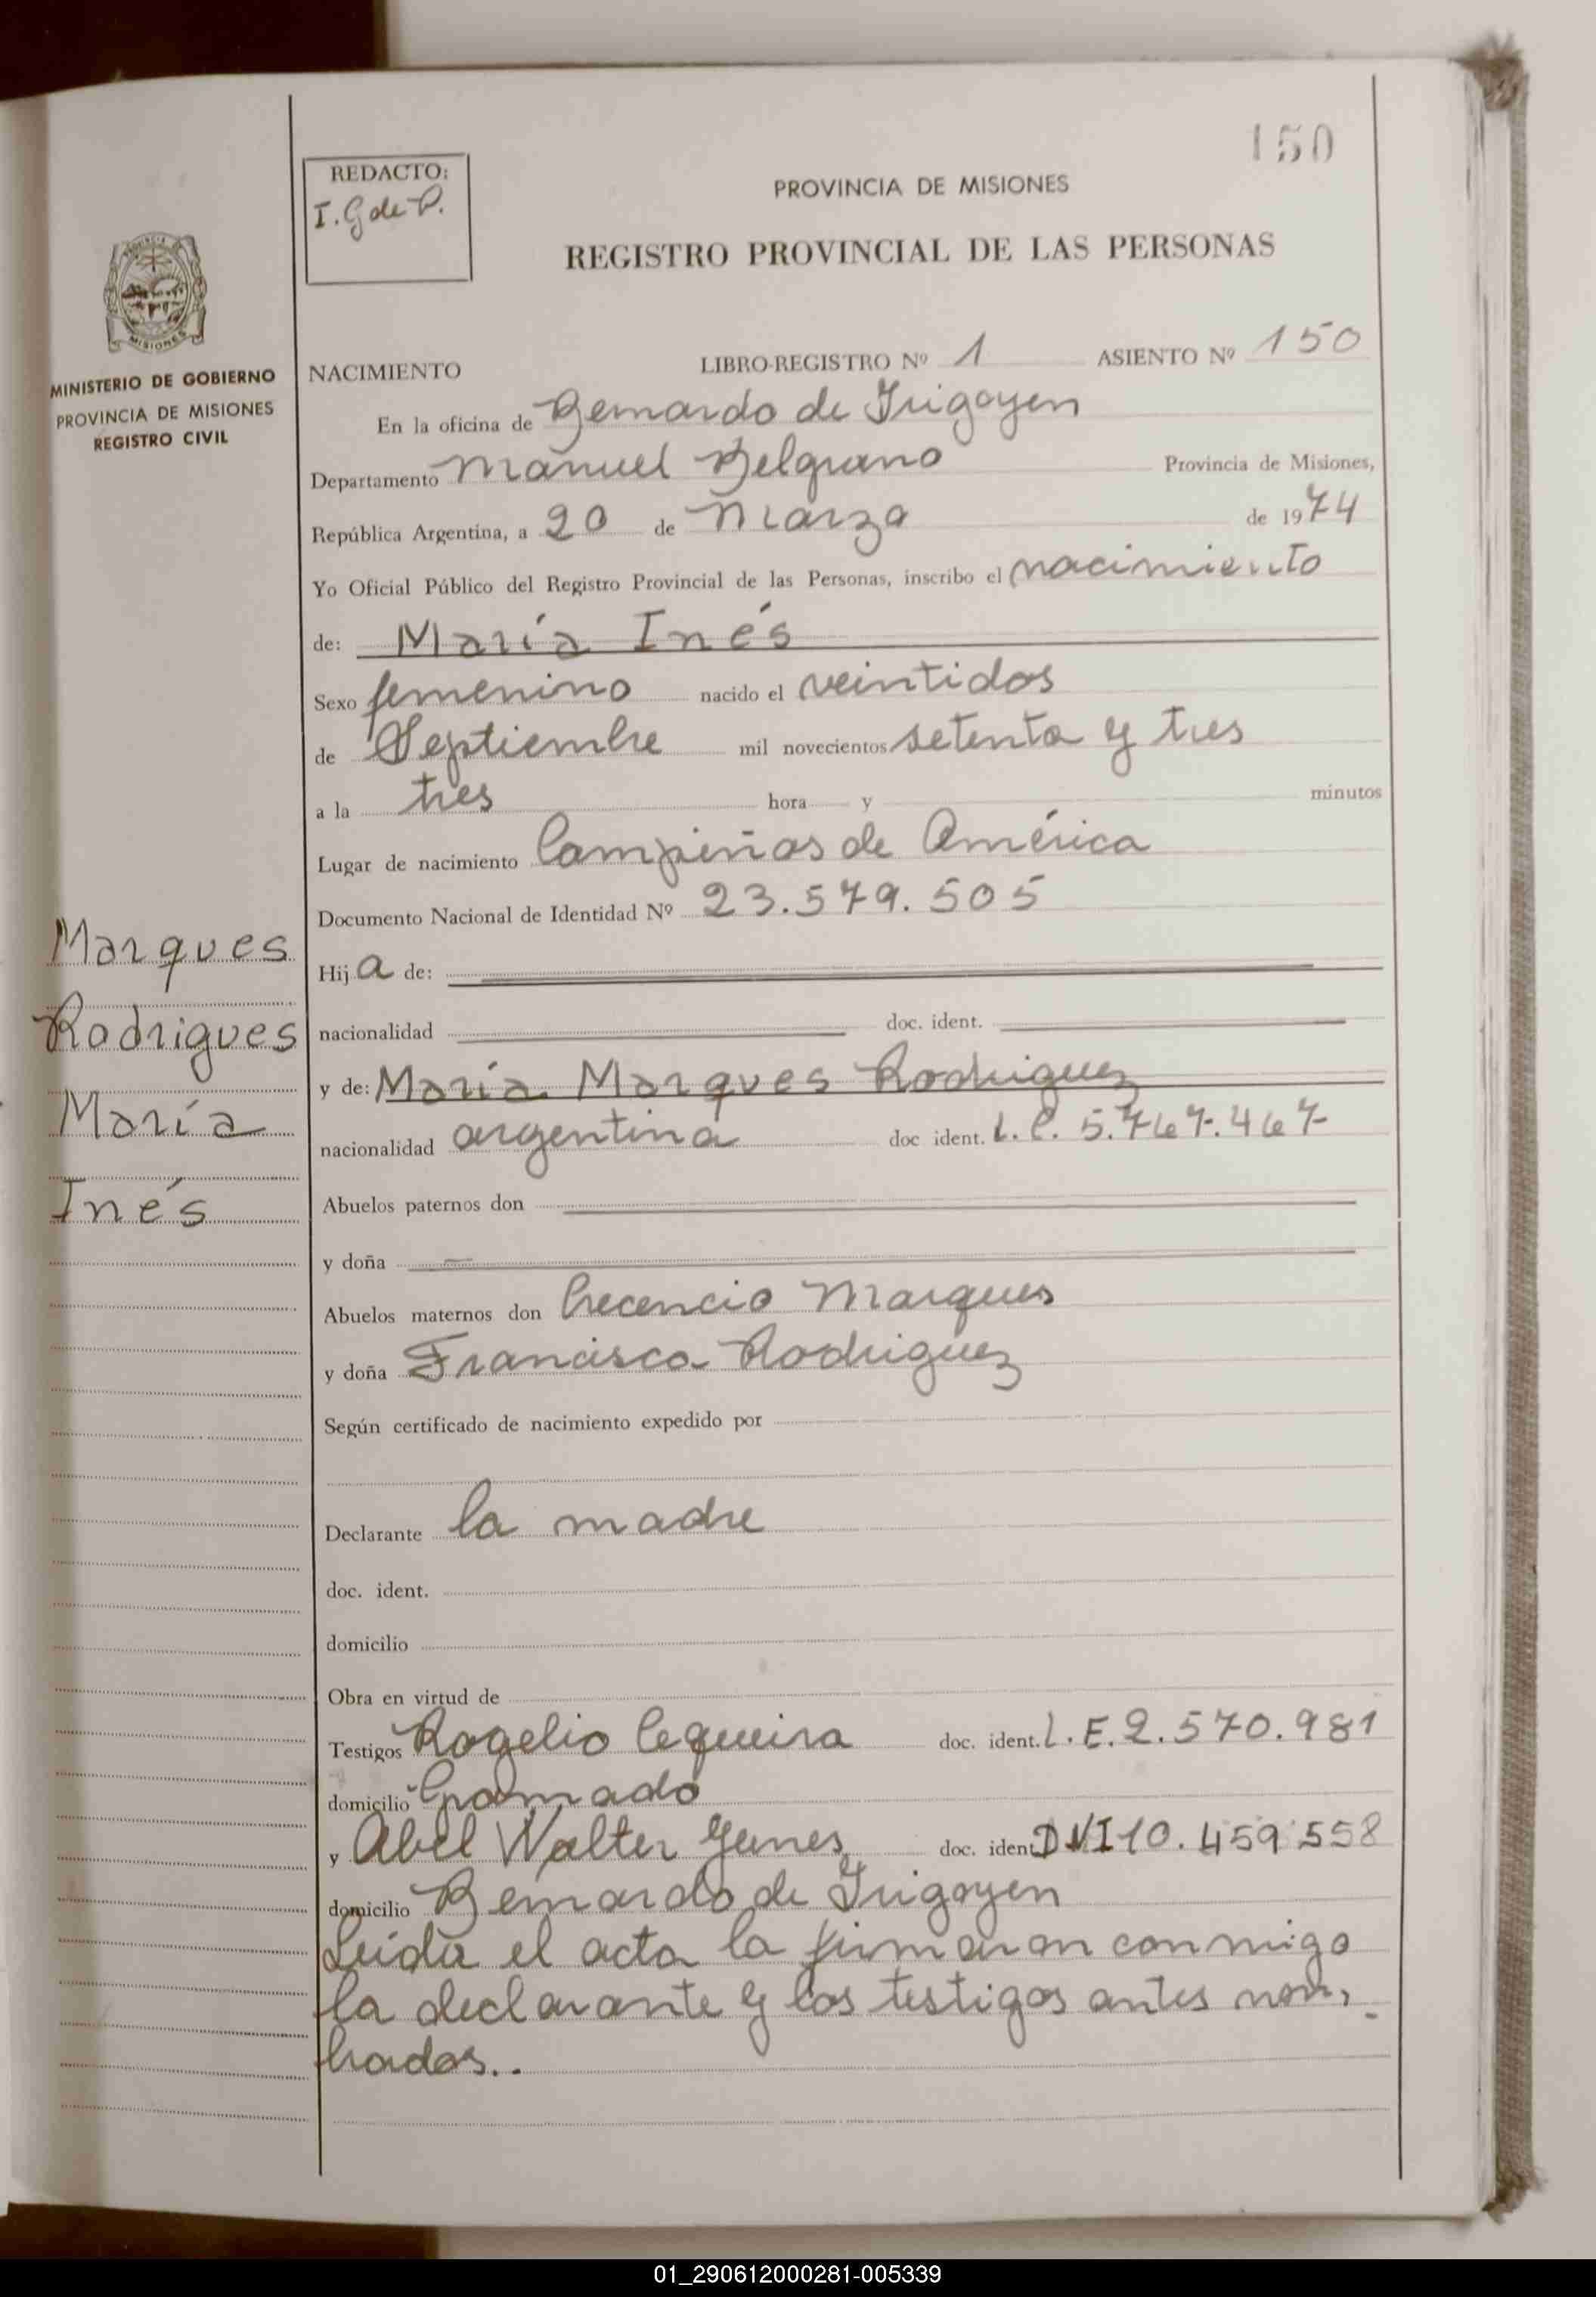 150
REDACTO:
I. G de P.
PROVINCIA DE MISIONES
REGISTRO PROVINCIAL DE LAS PERSONAS
MISIONES
MINISTERIO DE GOBIERNO
PROVINCIA DE MISIONES
REGISTRO CIVIL
NACIMIENTO LIBRO-REGISTRO Nº 1 ASIENTO Nº 150
En la oficina de Bernardo de Irigoyen
Departamento Manuel Belgrano Provincia de Misiones,
República Argentina, a 20 de Marzo de 1974
Yo Oficial Público del Registro Provincial de las Personas, inscribo el nacimiento
de: María Inés
Sexo femenino nacido el veintidos
de Septiembre mil novecientos setenta y tres
a la tres hora y minutos
Lugar de nacimiento Campiñas de América
Documento Nacional de Identidad Nº 23.579.505
Hija de:
nacionalidad doc. ident.
y de: María Marques Rodriguez
nacionalidad argentina doc ident. L.C. 5.767.467
Abuelos paternos don
y doña
Abuelos maternos don Crecencio Marques
y doña Francisca Rodriguez
Según certificado de nacimiento expedido por
Declarante la madre
doc. ident.
domicilio
Obra en virtud de
Testigos Rogelio Cequeira doc. ident. L.E. 2.570.981
domicilio Gramado
y Abel Walter Yunes doc. ident DNI 10.459.558
domicilio Bernardo de Irigoyen
Leída el acta la firmaron conmigo
la declarante y los testigos antes nom-
brados..
Marques
Rodrigues
María
Inés
01_290612000281-005339